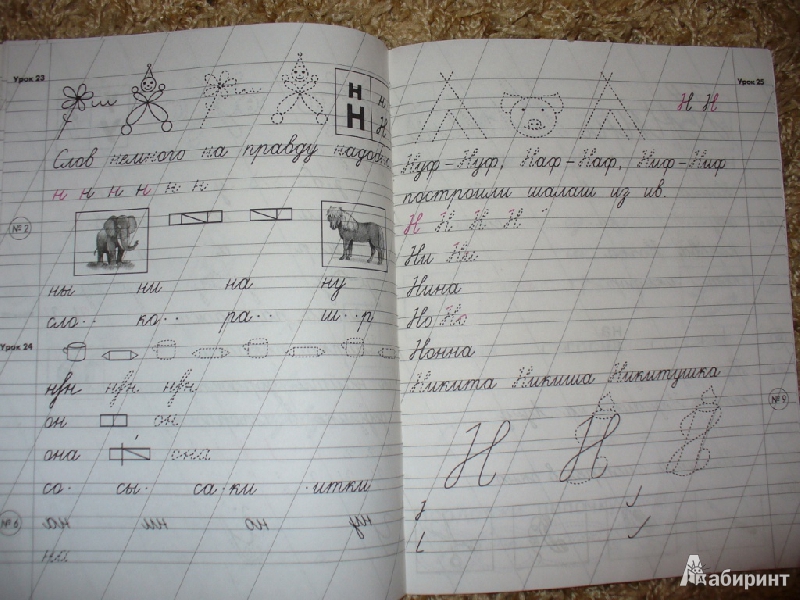 Урок 23
н н
Н Н
Слов немного на правду надобно
н н н н н н
№ 2
ны ни на ну
сло·· ко·· ра·· ш··р
Урок 24
нун нун нун
он он
она она
со· сы· са·ки ·итки
№ 6
на ни но ну
на
Урок 25
Н Н
Нуф-Нуф, Наф-Наф, Ниф-Ниф
построили шалаш из ив.
Н Н Н Н
Ни Ни
Нина
Но Но
Нонна
Никита Никиша Никитушка
№ 9
Н Н
Лабиринт